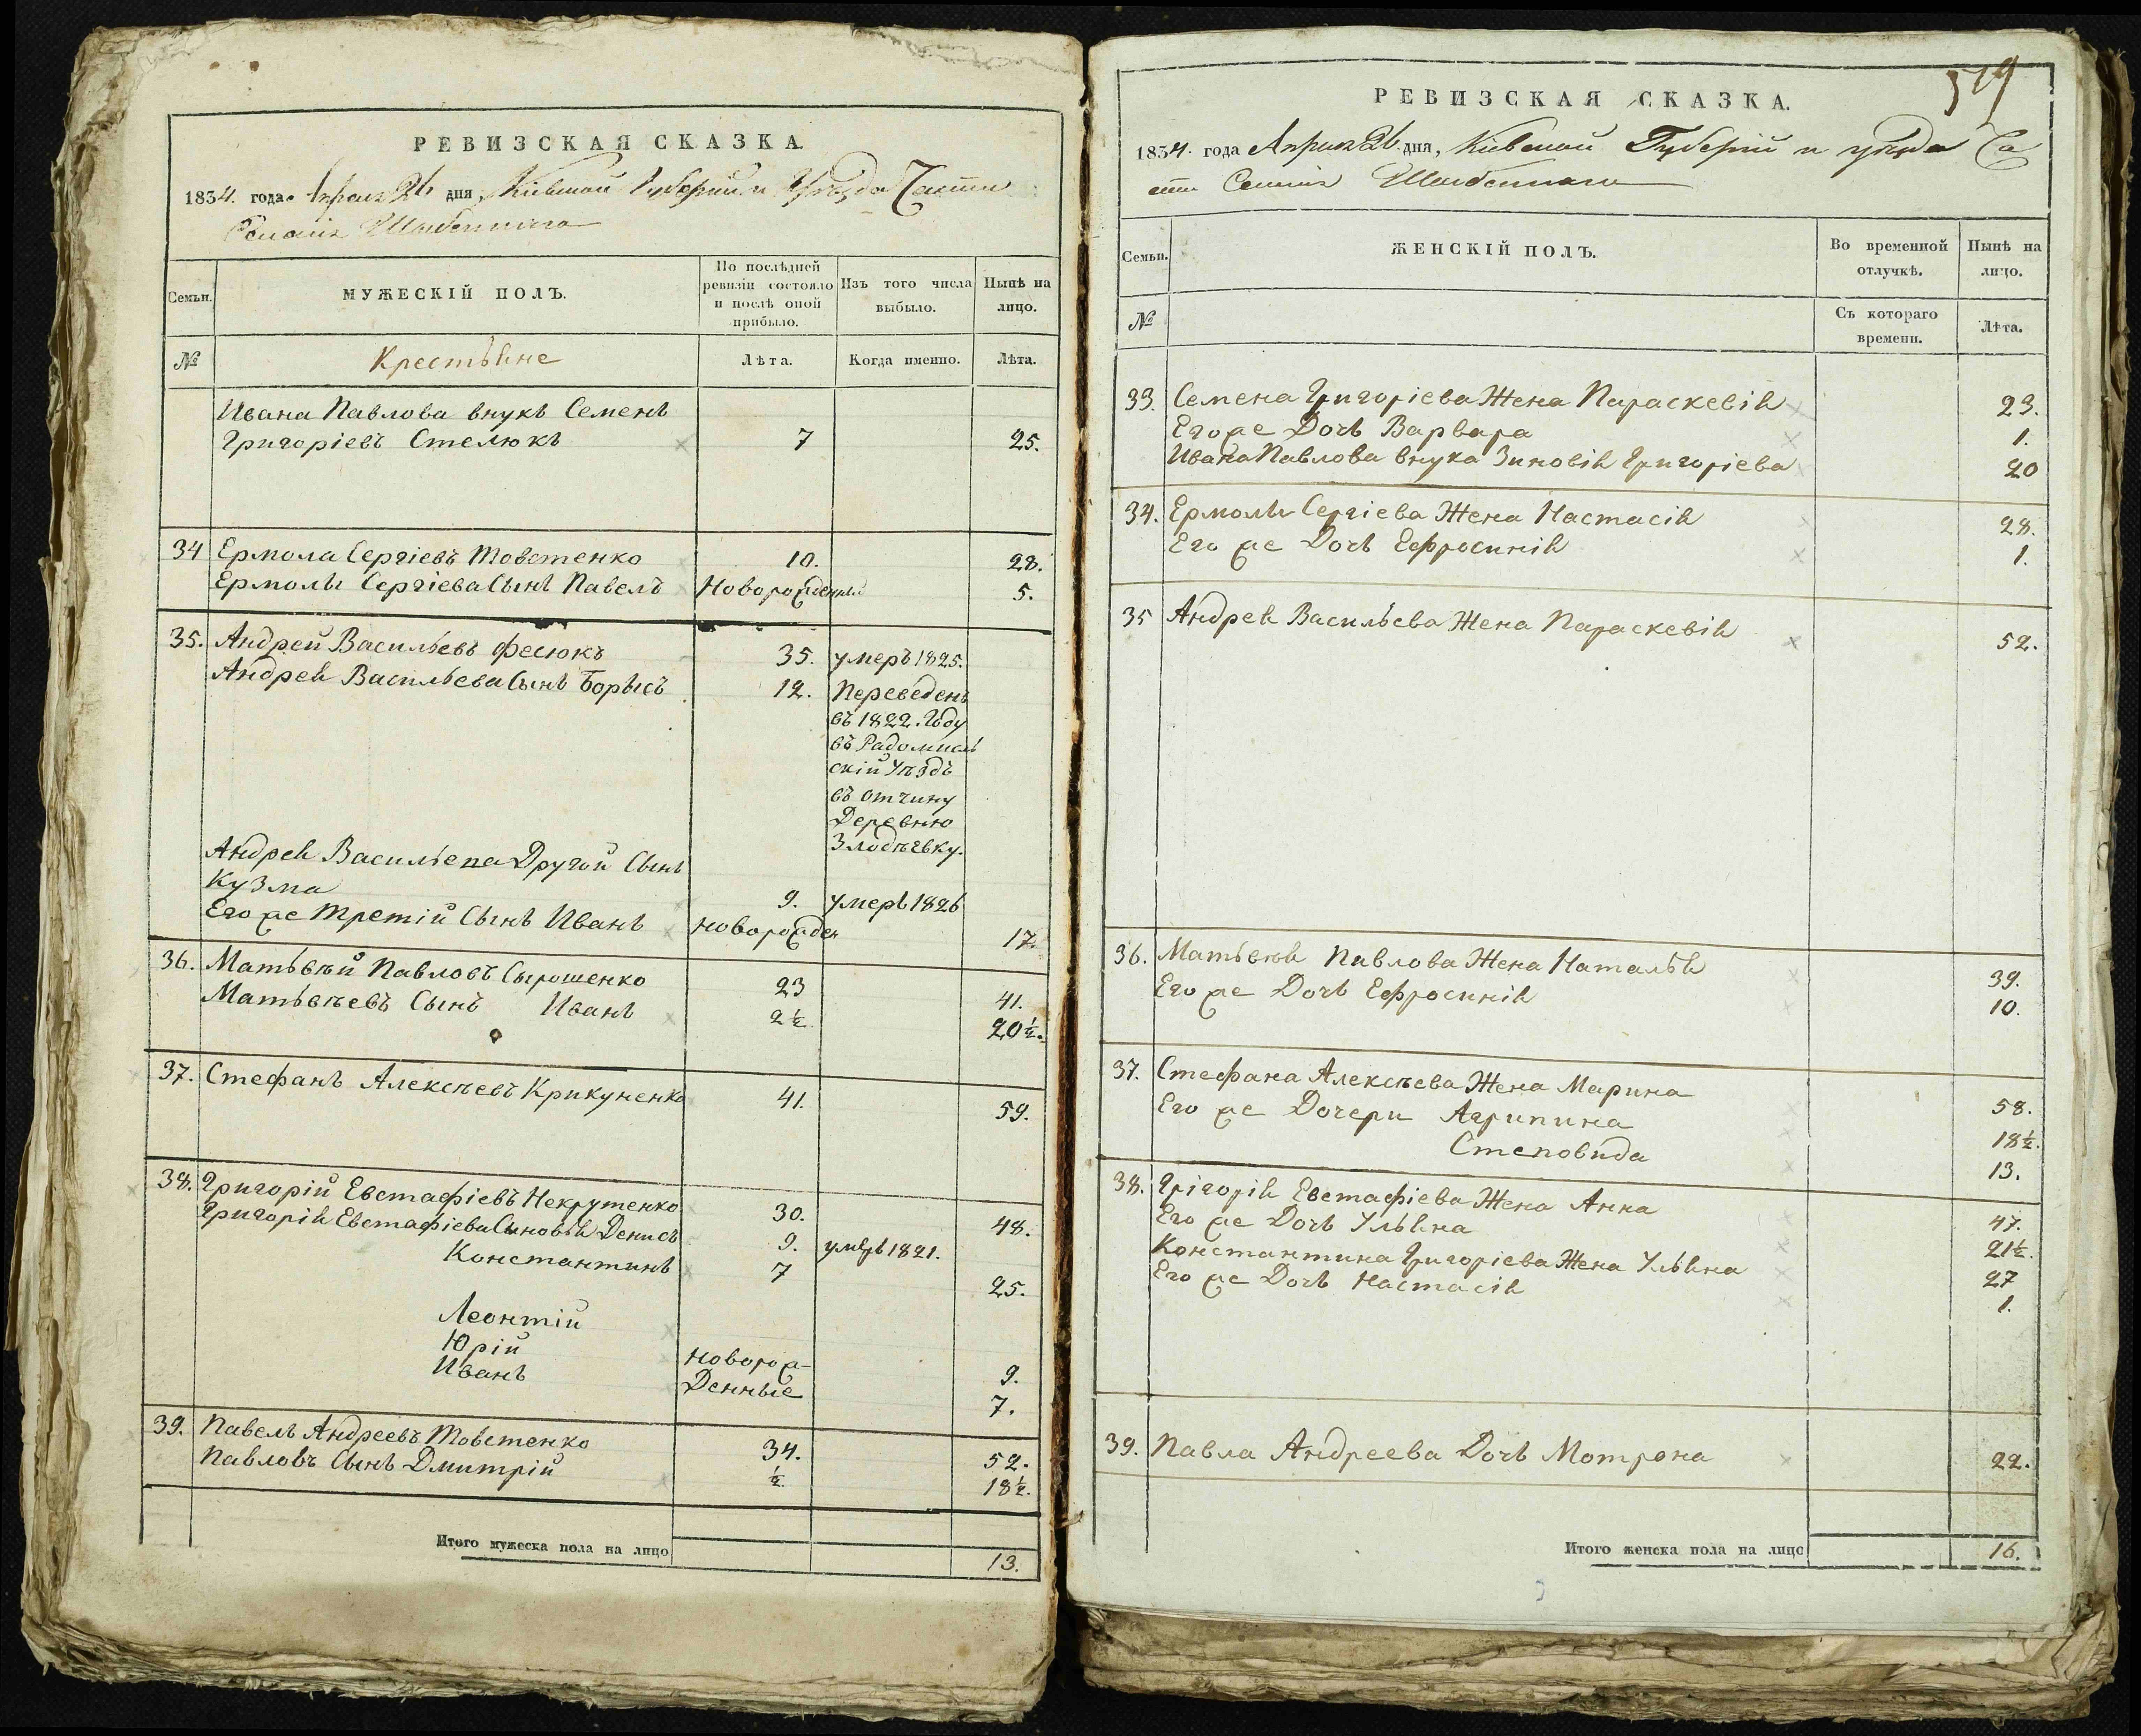 РЕВИЗСКАЯ СКАЗКА.
1834. года Апреля 26 дня, Кіевской Губерніи и Уѣзда Части
Селенія
Семьи.
МУЖЕСКІЙ ПОЛЪ.
По послѣдней ревизіи состояло и послѣ оной прибыло.
Изъ того числа выбыло.
Нынѣ на лицо.
№
Крестьяне
Лѣта.
Когда именно.
Лѣта.
Ивана Павлова внукъ Семенъ
Григоріевъ Стелюкъ 7 25.
34 Ермола Сергіевъ Товстенко 10. 28.
Ермолы Сергіева Сынъ Павелъ Новорожденный 5.
35. Андрей Васильевъ Фесюкъ 35. умеръ 1825.
Андрея Васильева Сынъ Борысъ 12. Переведенъ
въ 1822. Году
въ Радомысль
скій Уѣздъ
въ отчину
Деревню
Злодѣевку.
Андрея Васильева Другой Сынъ
Кузма 9. умеръ 1826
Его же Третій Сынъ Иванъ Новорожден 17.
36. Матьвѣй Павловъ Сырошенко 23 41.
Матьвѣевъ Сынъ Иванъ 2½ 20½.
37. Стефанъ Алексѣевъ Крикуненко 41. 59.
38. Григорій Евстафіевъ Некрутенко 30. 48.
Григорія Евстафіева Сыновья Денисъ 9. умеръ 1821.
Константинъ 7 25.
Леонтій
ЮрійНоворож- 9.
Иванъ Денные 7.
39. Павелъ Андреевъ Товстенко 34. 52.
Павловъ Сынъ Дмитрій ½. 18½.
Итого мужеска пола на лицо 13.
519
РЕВИЗСКАЯ СКАЗКА.
1834. года Апреля 26 дня, Кіевской Губерніи и уѣзда Ча
сти Селенія
Семьи.
ЖЕНСКІЙ ПОЛЪ.
Во временной отлучкѣ.
Нынѣ на лицо.
№
Съ котораго времени.
Лѣта.
33. Семена Григоріева Жена Параскевія 23.
Его же Дочь Варвара 1.
Ивана Павлова внука Зиновія Григоріева 20
34. Ермолы Сергіева Жена Настасія 28.
Его же Дочь Ефросинія 1.
35 Андрея Васильева Жена Параскевія 52.
36. Матьвѣя Павлова Жена Наталья 39.
Его же Дочь Ефросинія 10.
37. Стефана Алексѣева Жена Марина 58.
Его же Дочери Агрипина 18½.
Степовида 13.
38. Грігорія Евстафіева Жена Анна 47.
Его же Дочь Ульяна 21½.
Константина Григоріева Жена Ульяна 27
Его же Дочь Настасія 1.
39. Павла Андреева Дочь Мотрона 22.
Итого женска пола на лицо 16.